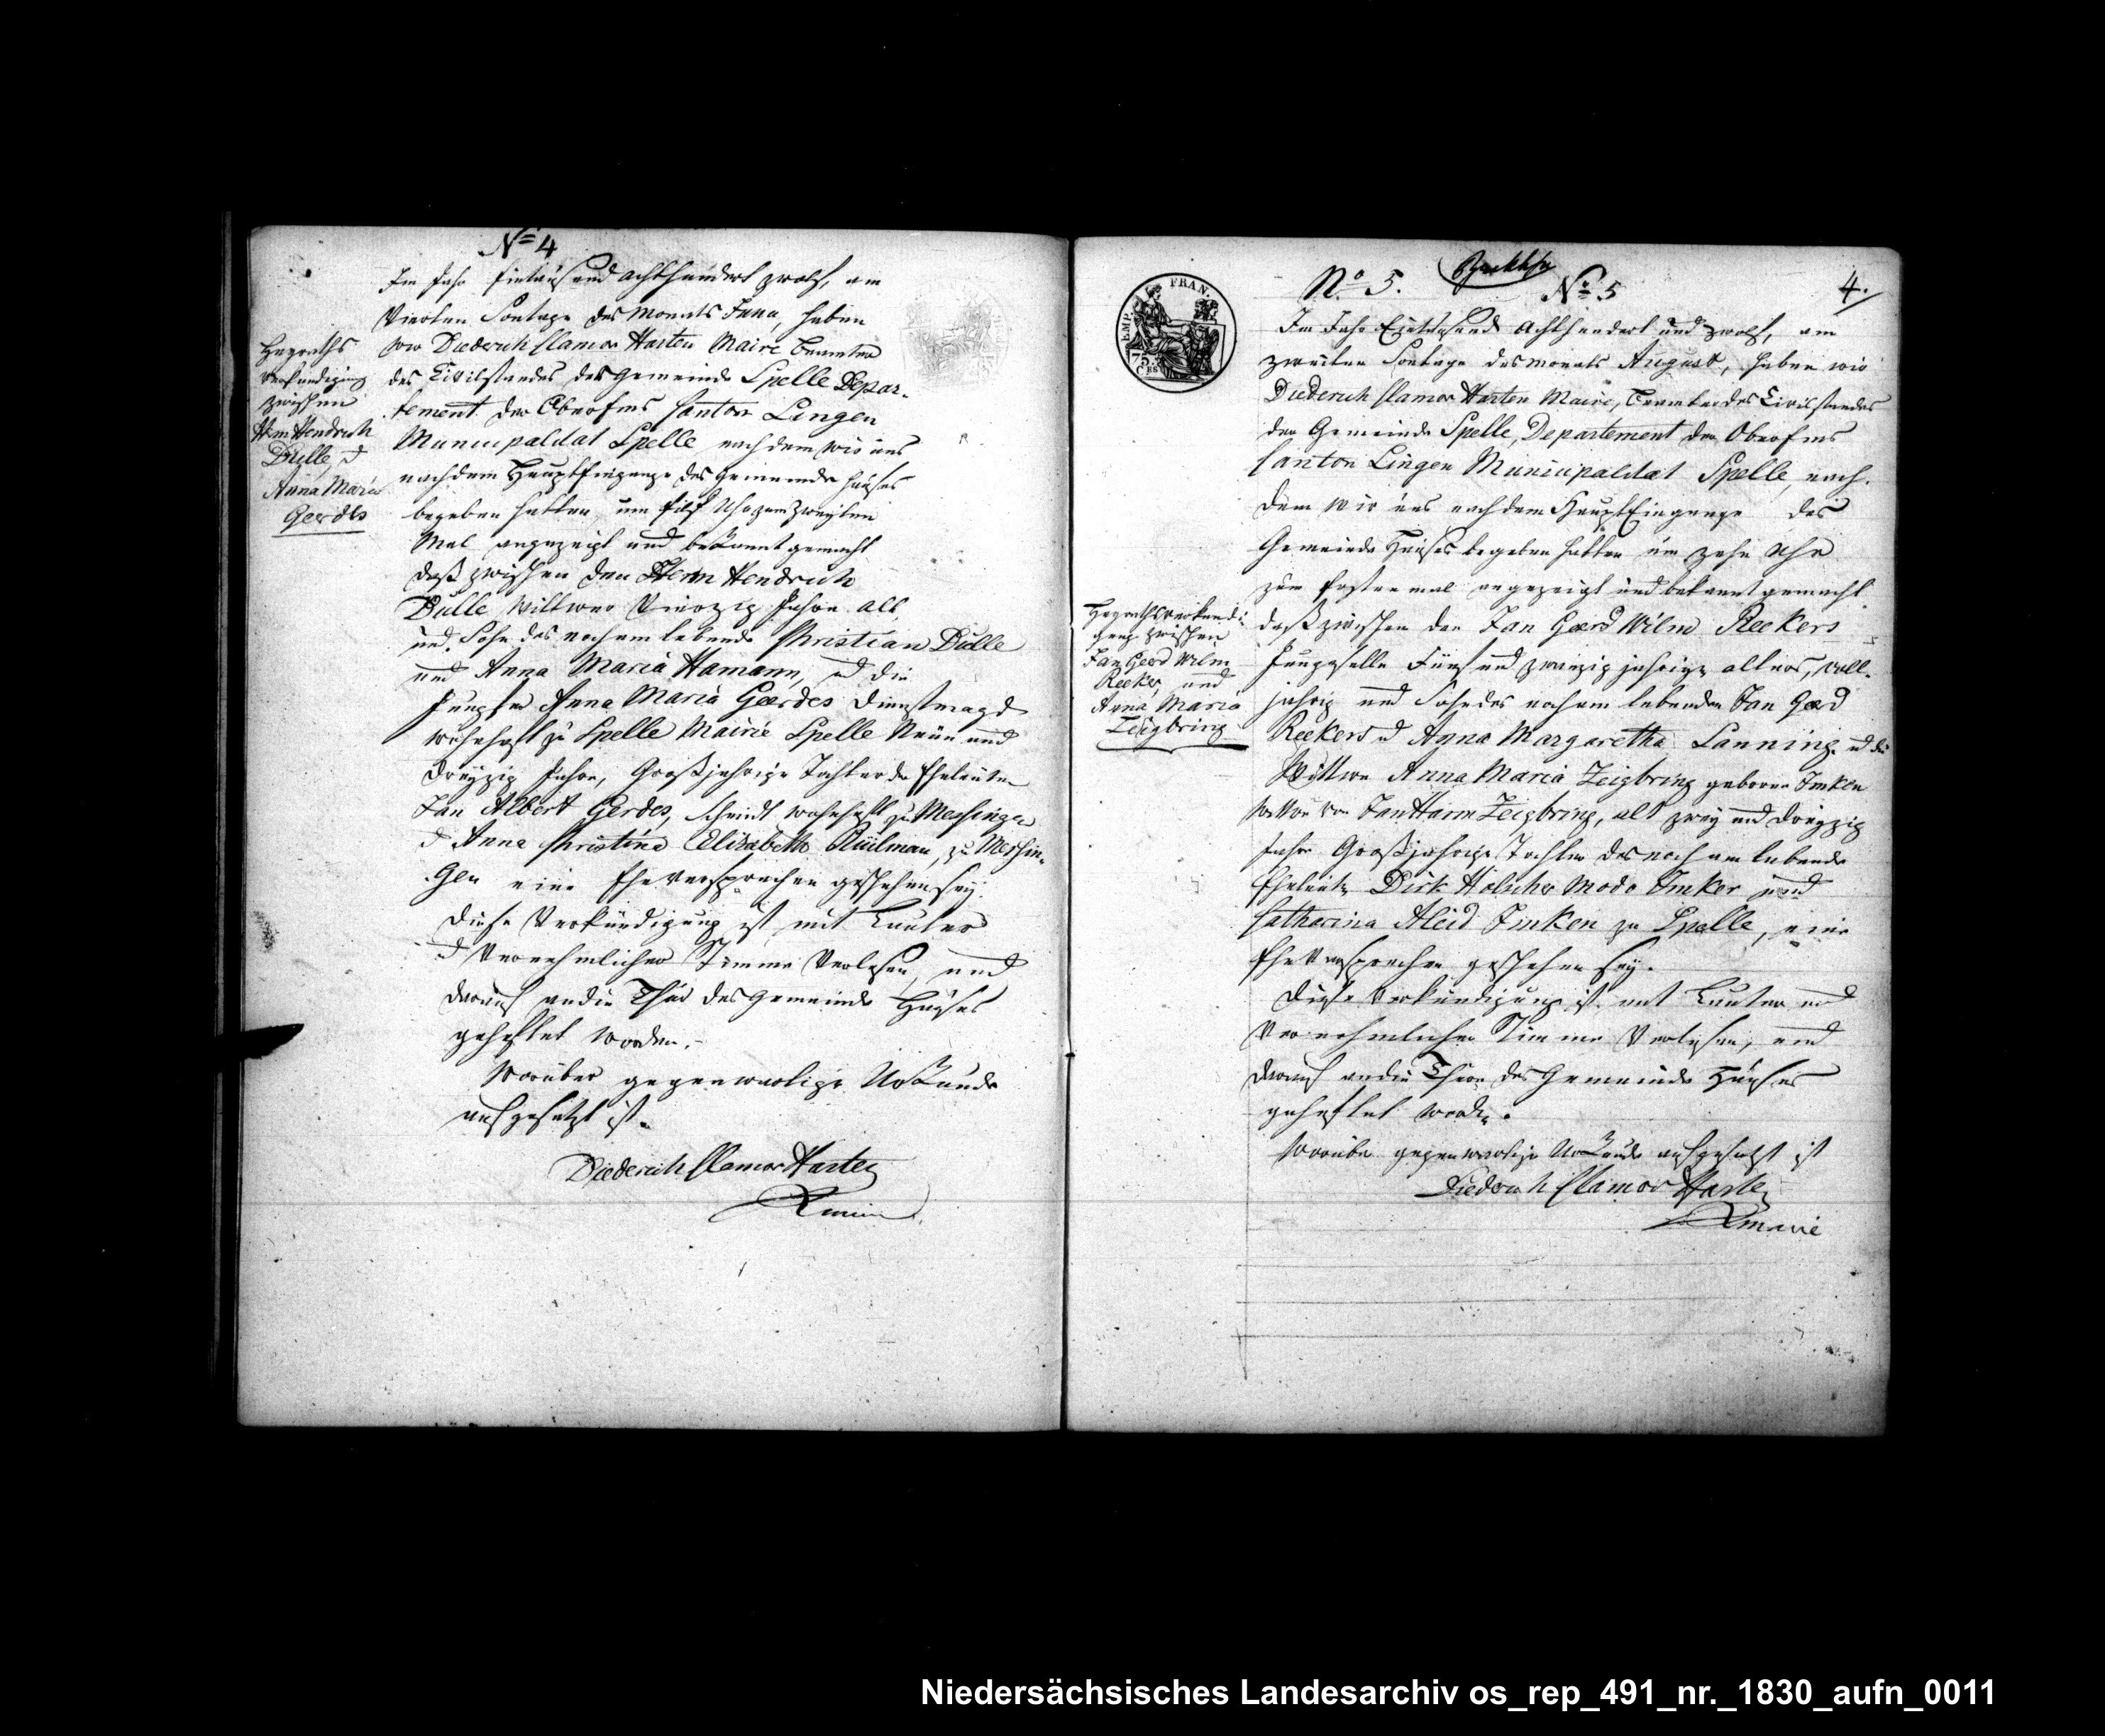 No 4
Im Jahr Eintausend achthundert zwolf, am
Vierten Sontage des Monats Juna, haben
wir Diederich Clamor Harten Maire Beamter
des Civilstandes der Gemeinde Spelle Depar-
tement der Oberems Canton Lingen
Municipalitat Spelle nachdem wir uns
nach dem Haupteingange des Gemeinde Hauses
begeben hatten um Uhr zum Zweyten
Mal angezeigt und bekannt gemacht
daß zwischen den Herm Hendrich
Dülle Wittwer Vierzig Jahre alt,
und Sohn des noch am lebende Christian Dülle
und Anna Maria Hamann, u die
Jungfer Anna Maria Gerdes Dienstmagd
wohnhaft zu Spelle Mairie Spelle Neün und
dreyzig Jahre, Großjahrige Tochter der Eheleuten
Jan Albert Gerdes, wohnhaft zu Messingen
u Anna Christina Elisabeth Rülman, zu Messin-
gen eine Eheversprechen geschehen sey.
Diese Verkündigung ist mit Lauter
u Vernehmlicher Stimme Verlesen, und
darauf an die Thür des Gemeinde Hauses
geheftet worden.
Worüber gegenwartige Urkunde
aufgesetzt ist.
Diederich Clamor Harten
Maire
Heyraths
verkundigung
zwischen
Hm Hendrich
Dülle, u
Anna Maria
Gerdes
FRAN.
EMP.
75
CES
No 5.
No 5
4.
Im Jahr Eintausend Achthundert und zwolf, am
zweiten Sontage des Monats August, haben wir
Diederich Clamor Harten Maire, Beamter des Civilstandes
der Gemeinde Spelle, Departement der Oberems
Canton Lingen Municipalitat Spelle, nach-
dem wir uns nach dem Haupt Eingange des
Gemeinde Hauses begeben hatten um zehn Uhr
zum Ersten mal angezeigt und bekannt gemacht
daß zwischen den Jan Gerd Wilm Reekers
Junggeselle Fünf und zwanzig jahrige alters, voll-
jahrig und Sohn des noch am lebenden Jan Gerd
Reekers u Anna Margaretha Lanning u die
Wittwe Anna Maria Zeigbring geborene Imken
Wittwe von Jan Harm Zeigbring, alt zwey und dreyzig
Jahre Großjahrige Tochter des noch am lebende
Eheleute Dirk Hölscher modo Imker und
Catharina Aleid Imken zu Spelle, eine
Eheversprechen geschehen sey.
Diese Verkündigung ist mit Lauter und
Vernehmlicher Stimme Verlesen, und
darauf an die Thüre des Gemeinde Hauses
geheftet worden.
Worüber gegenwartige Urkunde aufgesetzt ist
Diederich Clamor Harten
Maire
Heyrathsverkundi-
gung zwischen
Jan Gerd Wilm
Reeker, und
Anna Maria
Zeigbring
Niedersächsisches Landesarchiv os_rep_491_nr._1830_aufn_0011